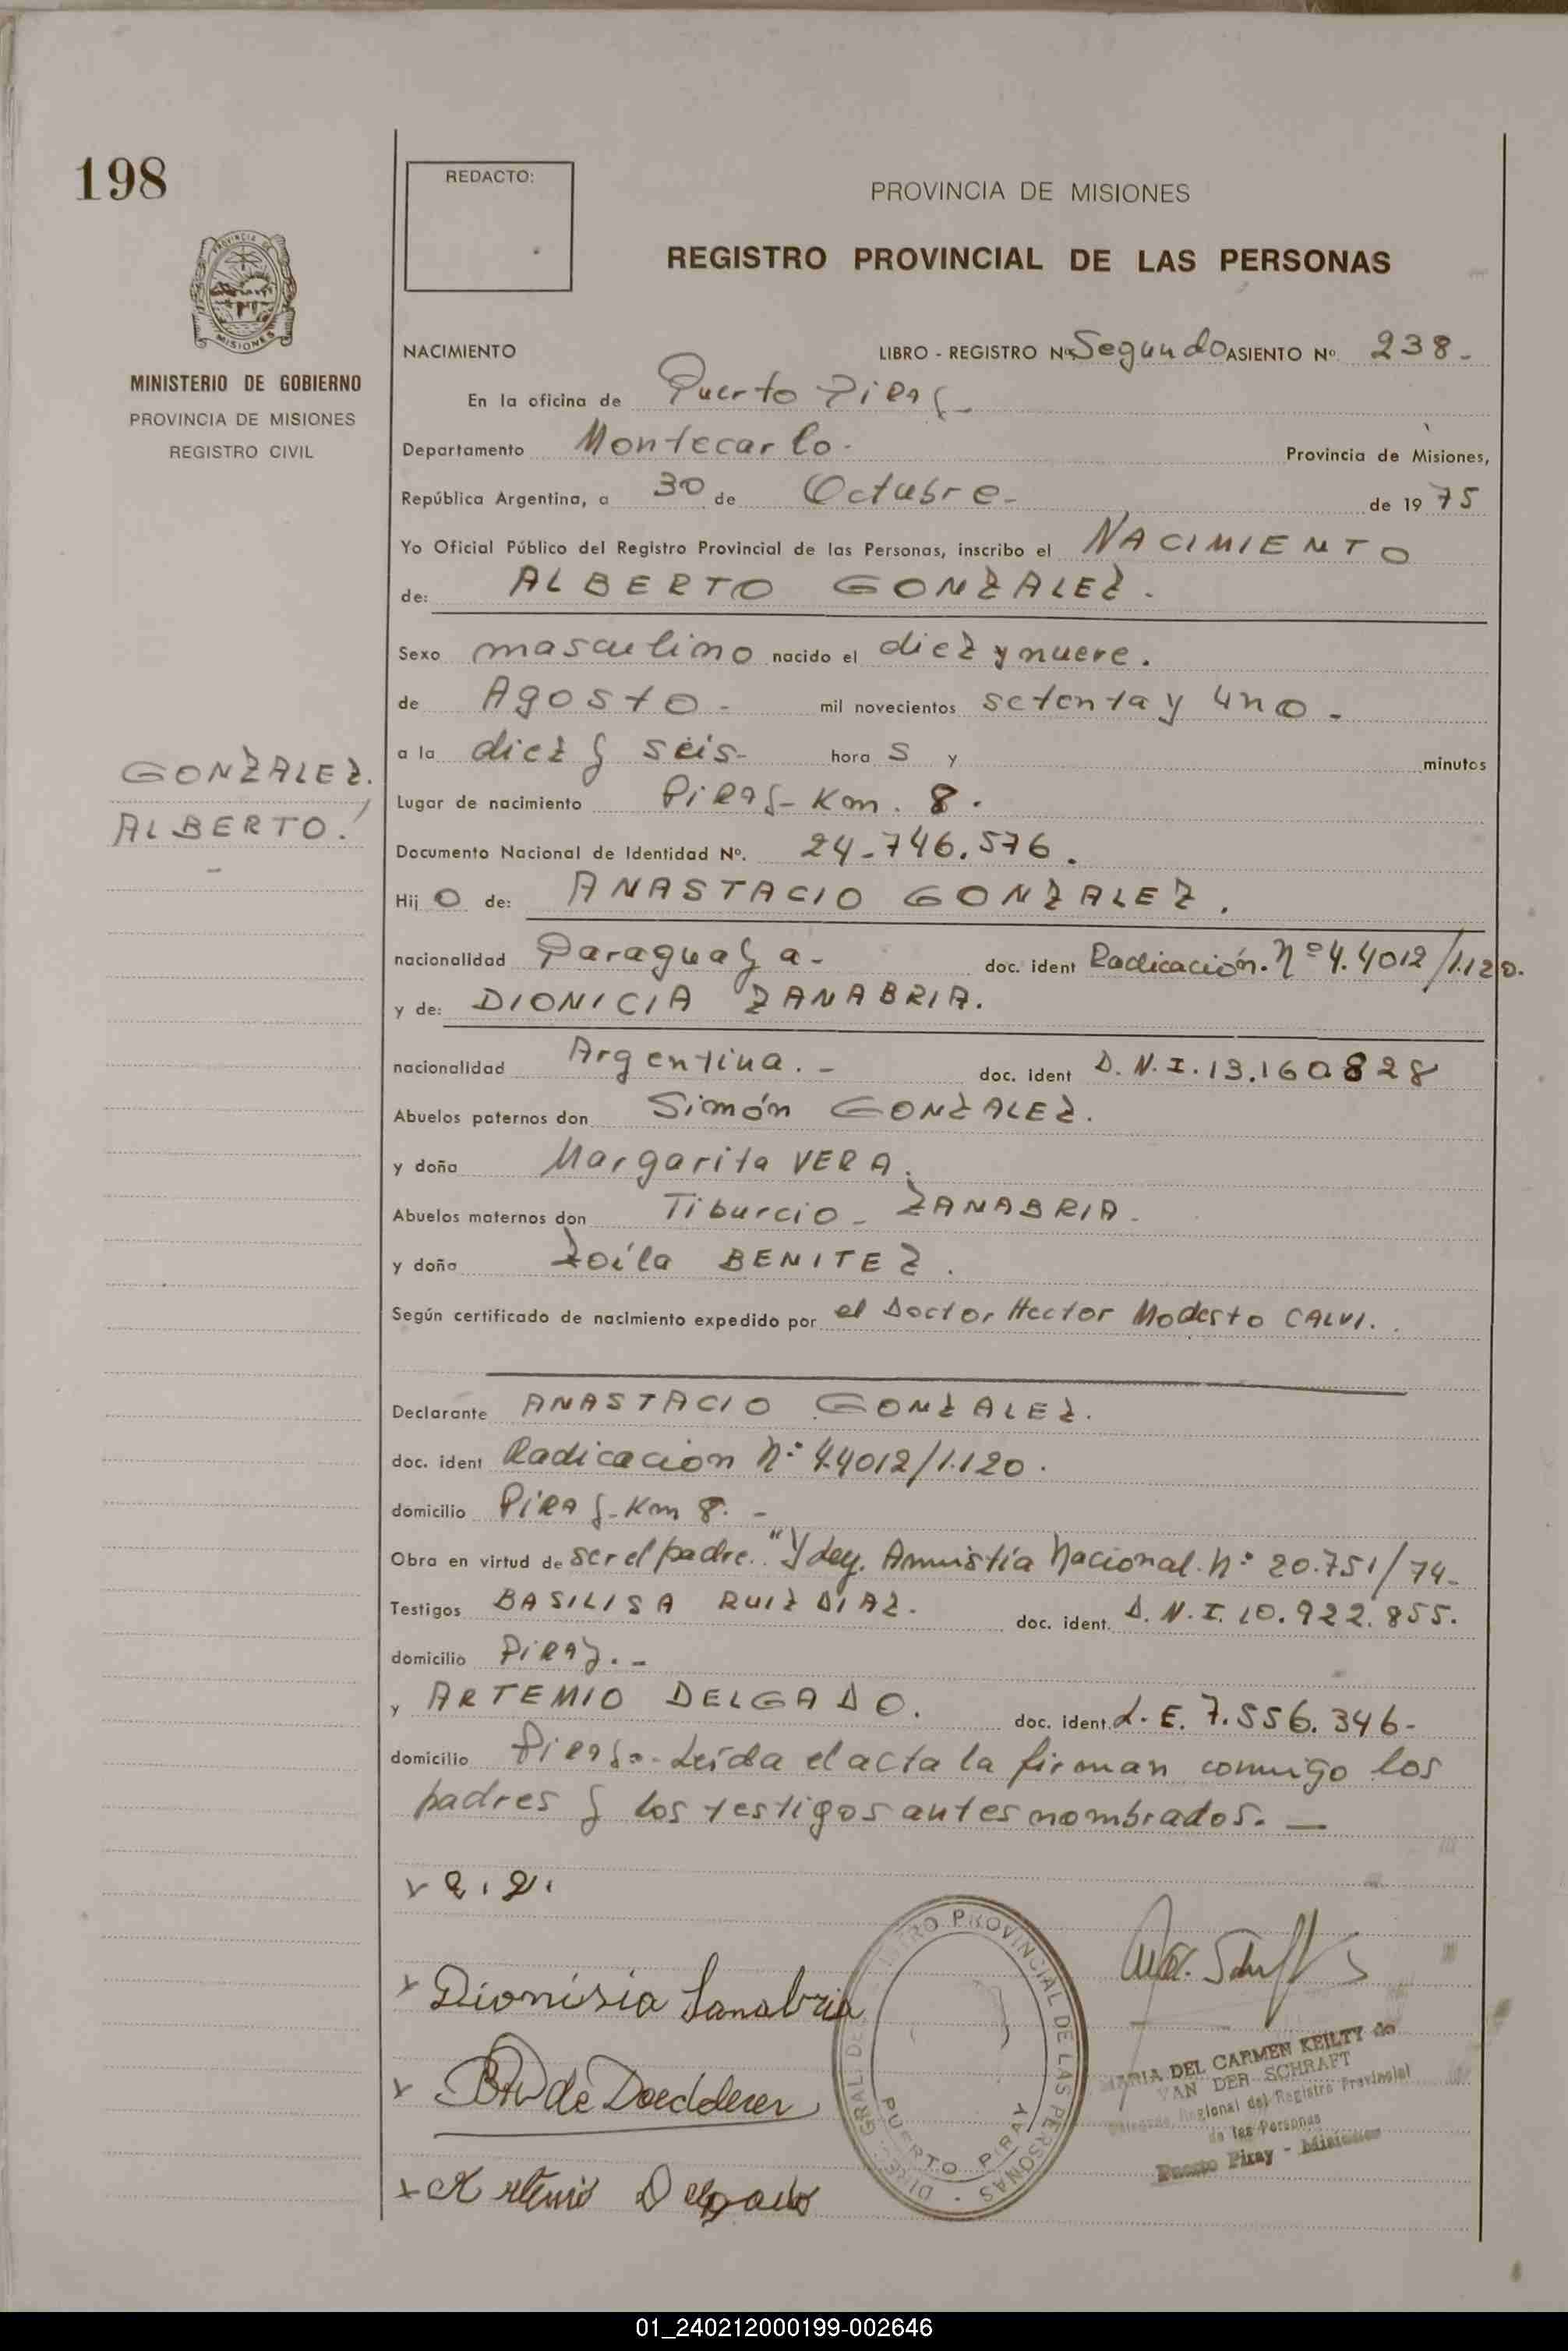 198
REDACTO:
PROVINCIA DE MISIONES
REGISTRO PROVINCIAL DE LAS PERSONAS
PROVINCIA DE MISIONES
MINISTERIO DE GOBIERNO
PROVINCIA DE MISIONES
REGISTRO CIVIL
NACIMIENTO LIBRO - REGISTRO Nº Segundo ASIENTO Nº 238.-
En la oficina de Puerto Piray-
Departamento Montecarlo- Provincia de Misiones,
República Argentina, a 30 de Octubre- de 1975
Yo Oficial Público del Registro Provincial de las Personas, inscribo el NACIMIENTO
de: ALBERTO GONZALEZ.
Sexo masculino nacido el diez y nueve.
de Agosto- mil novecientos setenta y uno-
a la diez y seis- hora s y minutos
GONZALEZ.
ALBERTO.
Lugar de nacimiento Piray- Km. 8.
Documento Nacional de Identidad Nº. 24-746.576.
Hij o de: ANASTACIO GONZALEZ.
nacionalidad Paraguaya- doc. ident Radicación. Nº 4.4012/1.120.
y de: DIONICIA ZANABRIA.
nacionalidad Argentina.- doc. ident D.N.I. 13.160828
Abuelos paternos don Simón GONZALEZ.
y doña Margarita VERA.
Abuelos maternos don Tiburcio- ZANABRIA-
y doña Zoila BENITEZ.
Según certificado de nacimiento expedido por el Doctor Hector Modesto CALVI.
Declarante ANASTACIO GONZALEZ.
doc. ident Radicacion Nº 4.4012/1.120.
domicilio Piray-Km 8.-
Obra en virtud de ser el padre. "Y Ley. Amnistía Nacional. Nº 20.751/74-
Testigos BASILISA RUIZ DIAZ. doc. ident. D.N.I. 10.922.855.
domicilio Piray.-
y ARTEMIO DELGADO. doc. ident. L.E. 7.556.346-
domicilio Piray.- Leída el acta la firman conmigo los
padres y los testigos antes nombrados.-
x
x Dionisia Sanabria
x de Doedderer
x Artemio Delgado
REGISTRO PROVINCIAL DE LAS PERSONAS
PUERTO PIRAY
MARIA DEL CARMEN KEILTY de
VAN DER SCHRAFT
Delegada Regional del Registro Provincial
de las Personas
Puerto Piray - Misiones
01_240212000199-002646